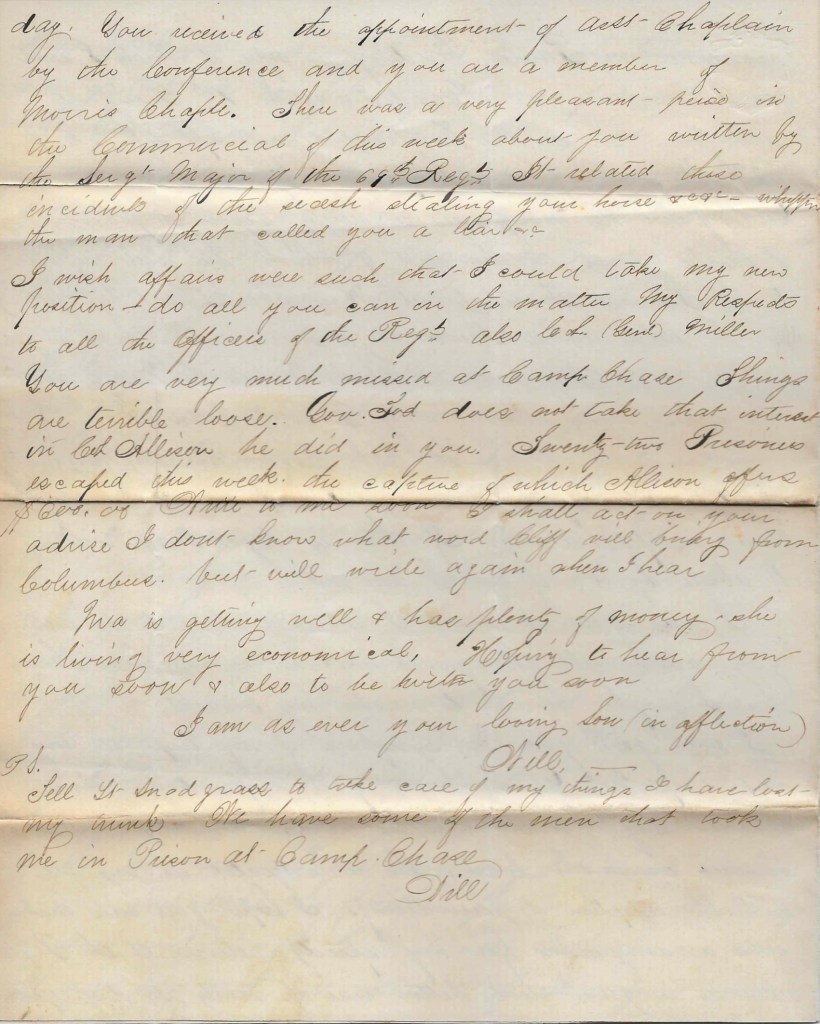 day. You received the appointment of asst Chaplain
by the Conference and you are a member of
Morris Chaple. There was a very pleasant peice in
the Commercial of this week about you written by
the Serg't Major of the 69th Regt It related those
incidents of the secesh stealing your horse &c - whipping
the man that called you a liar &c
I wish affairs were such that I could take my new
position - do all you can in the matter My Respects
to all the Officers of the Regt also Col. (Genl) Miller
You are very much missed at Camp Chase Things
are terrible loose. Gov. Tod does not take that interest
in Col Allison he did in you. Twenty-two Prisoners
escaped this week. the capture of which Allison offers
Write to me soon I shall act on your
advise I dont know what word Cliff will bring from
Columbus. but will write again when I hear
Ma is getting well & has plenty of money - she
is living very economical, Hoping to hear from
you soon & also to be with you soon
I am as ever your loving Son (in affliction)
Will
P.S.
Tell Lt Snodgrass to take care of my things I have lost
my trunk. We have some of the men that took
me in Prison at Camp Chase
Will